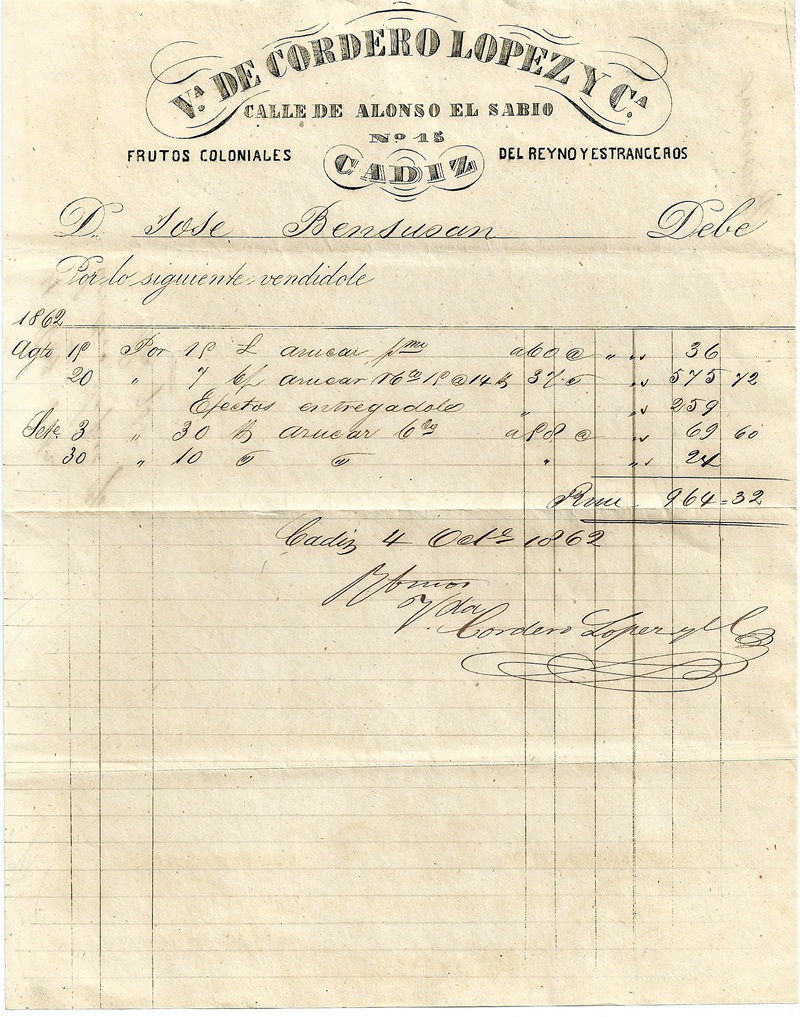 Vª. DE CORDERO LOPEZ Y Cª.
CALLE DE ALONSO EL SABIO
Nº 15
FRUTOS COLONIALES
CADIZ
DEL REYNO Y ESTRANGEROS
D. Jose Bensusan Debe
Por lo siguiente vendidole
1862
Agto 15 Por 15 azucar a 60 @ " " 36
20 " 7 azucar 15 @ 14 37 " 575 72
Efectos entregadole " " 259
Sete. 3 " 30 azucar a 58 @ " 69 60
30 " 10 " " 24
Rvn 964=32
Cadiz 4 Octe 1862
Vda
Cordero Lopez y C